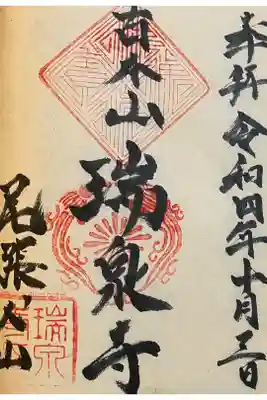 奉拝 令和四年十月三日
瑞泉寺
尾張犬山
瑞泉